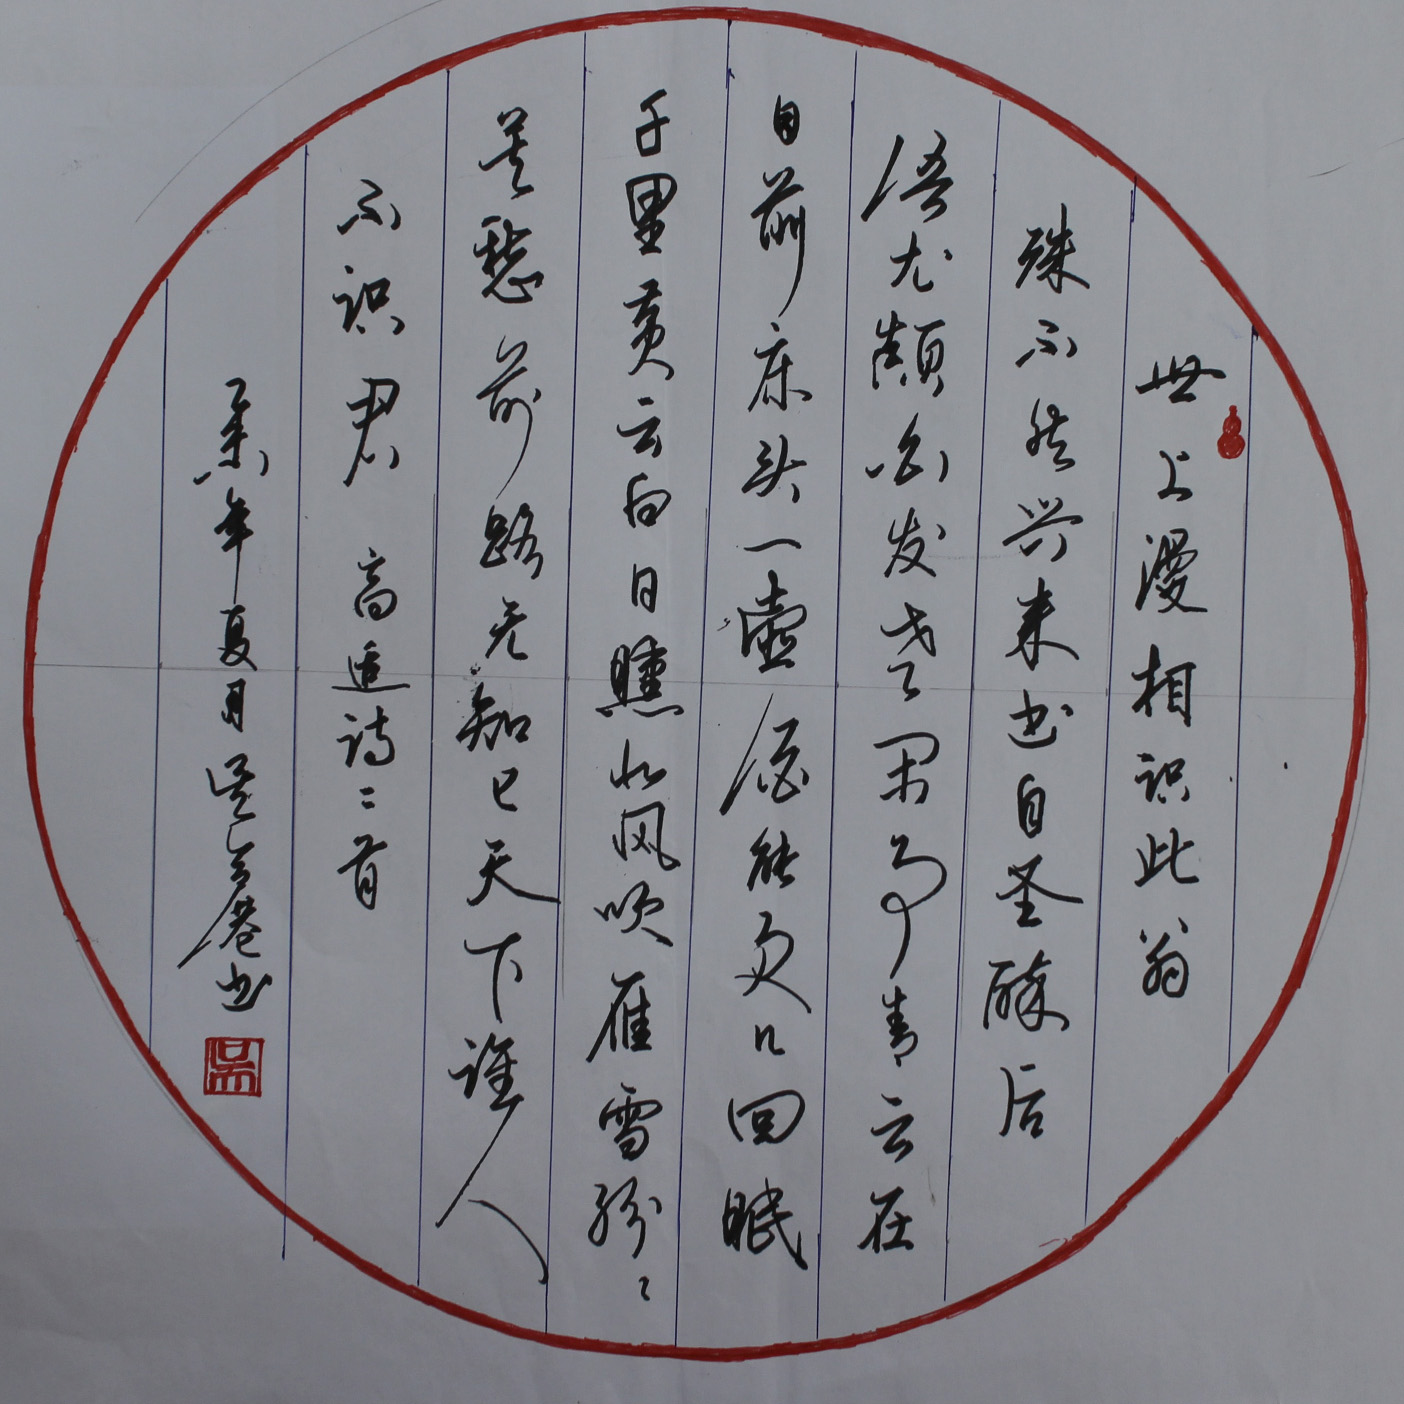 世上漫相识此翁
殊不然兴来书自圣醉后
语尤颠白发老闲事青云在
目前床头一壶酒能更几回眠
千里黄云白日曛北风吹雁雪纷〻
莫愁前路无知己天下谁人
不识君 高适诗二首
乙未年夏月吴庵书
吴